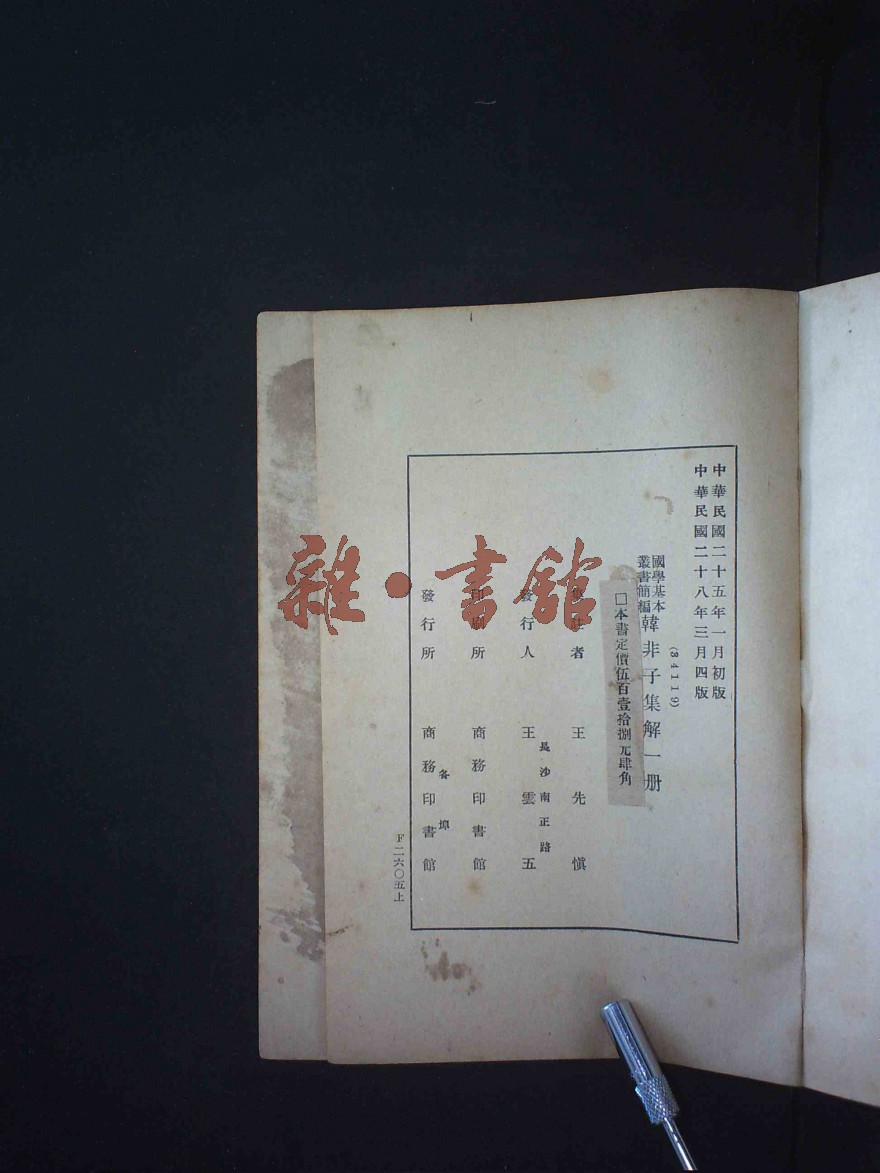 中華民國二十五年一月初版
中華民國二十八年三月四版
(34119)
國學基本
叢書簡編
韓非子集解一册
□本書定價伍百壹拾捌元肆角
者 王先慎
發行人 王雲五
長沙南正路
印刷所 商務印書館
發行所 商務印書館
各埠
F二六〇五上
雜·書館